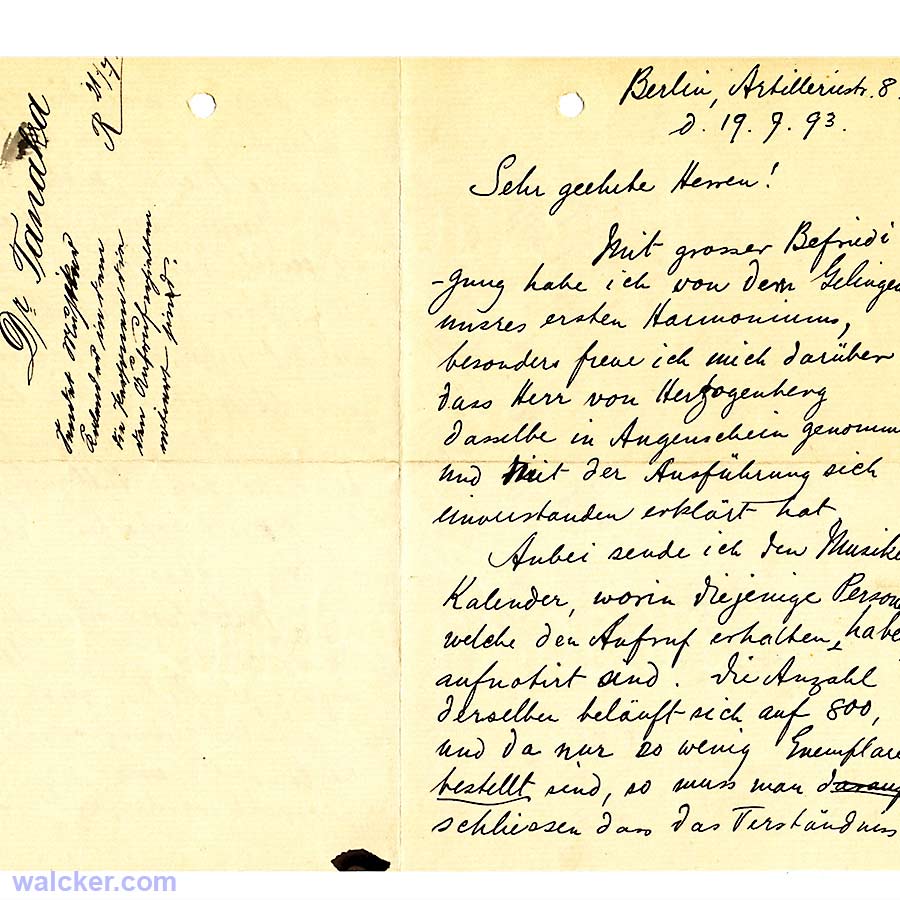 Dr Tanaka
R 21/7.
sendet Musiker
Kalender in dem
die Personen
den Aufruf erhalten
notiert sind.
Berlin, Artilleriestr. 8.
d. 19. 7. 93.
Sehr geehrte Herren!
Mit grosser Befriedi
-gung habe ich von dem Gelingen
unsres ersten Harmoniums,
besonders freue ich mich darüber
dass Herr von Herzogenberg
dasselbe in Augenschein genomm
und mit der Ausführung sich
einverstanden erklärt hat
Anbei sende ich den Musike
Kalender, worin diejenige Person
welche den Aufruf erhalten, habe
aufnotirt sind. Die Anzahl
derselben beläuft sich auf 800,
und da nur so wenig Exemplare
bestellt sind, so muss man daraus
schliessen dass das Verständniss
walcker.com